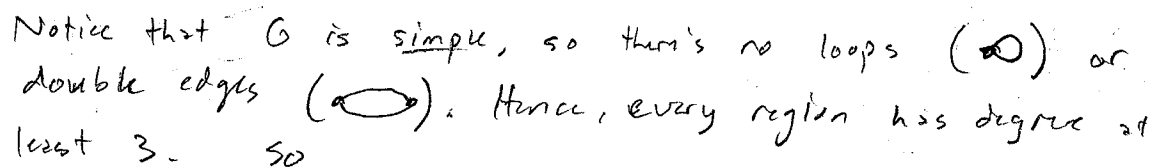 Notice that G is simple, so there's no loops ( ) or
double edges ( ). Hence, every region has degree at
least 3. So